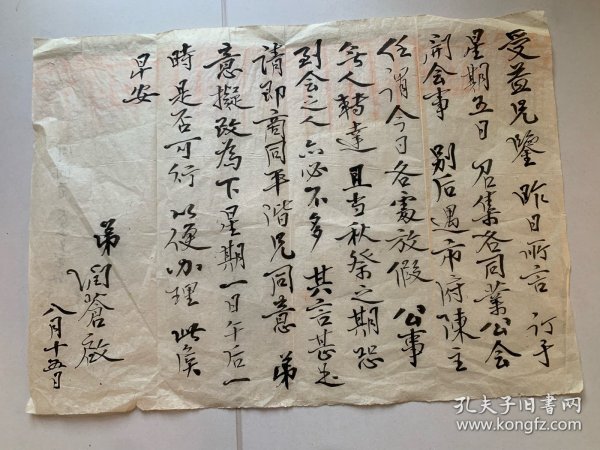 受益兄鑒 昨日所言 訂于
星期五日 召集各同業公会
開会事 别后遇市府陳主
任谓今日各處放假 公事
無人轉達 且当秋祭之期恐
到会之人亦必不多 其言甚是
請即商同平階兄同意 弟
意擬改為下星期一日午后一
時是否可行 以便办理 此侯
早安
弟
润蒼啟
八月十五日
孔夫子旧书网
www.kongfz.com